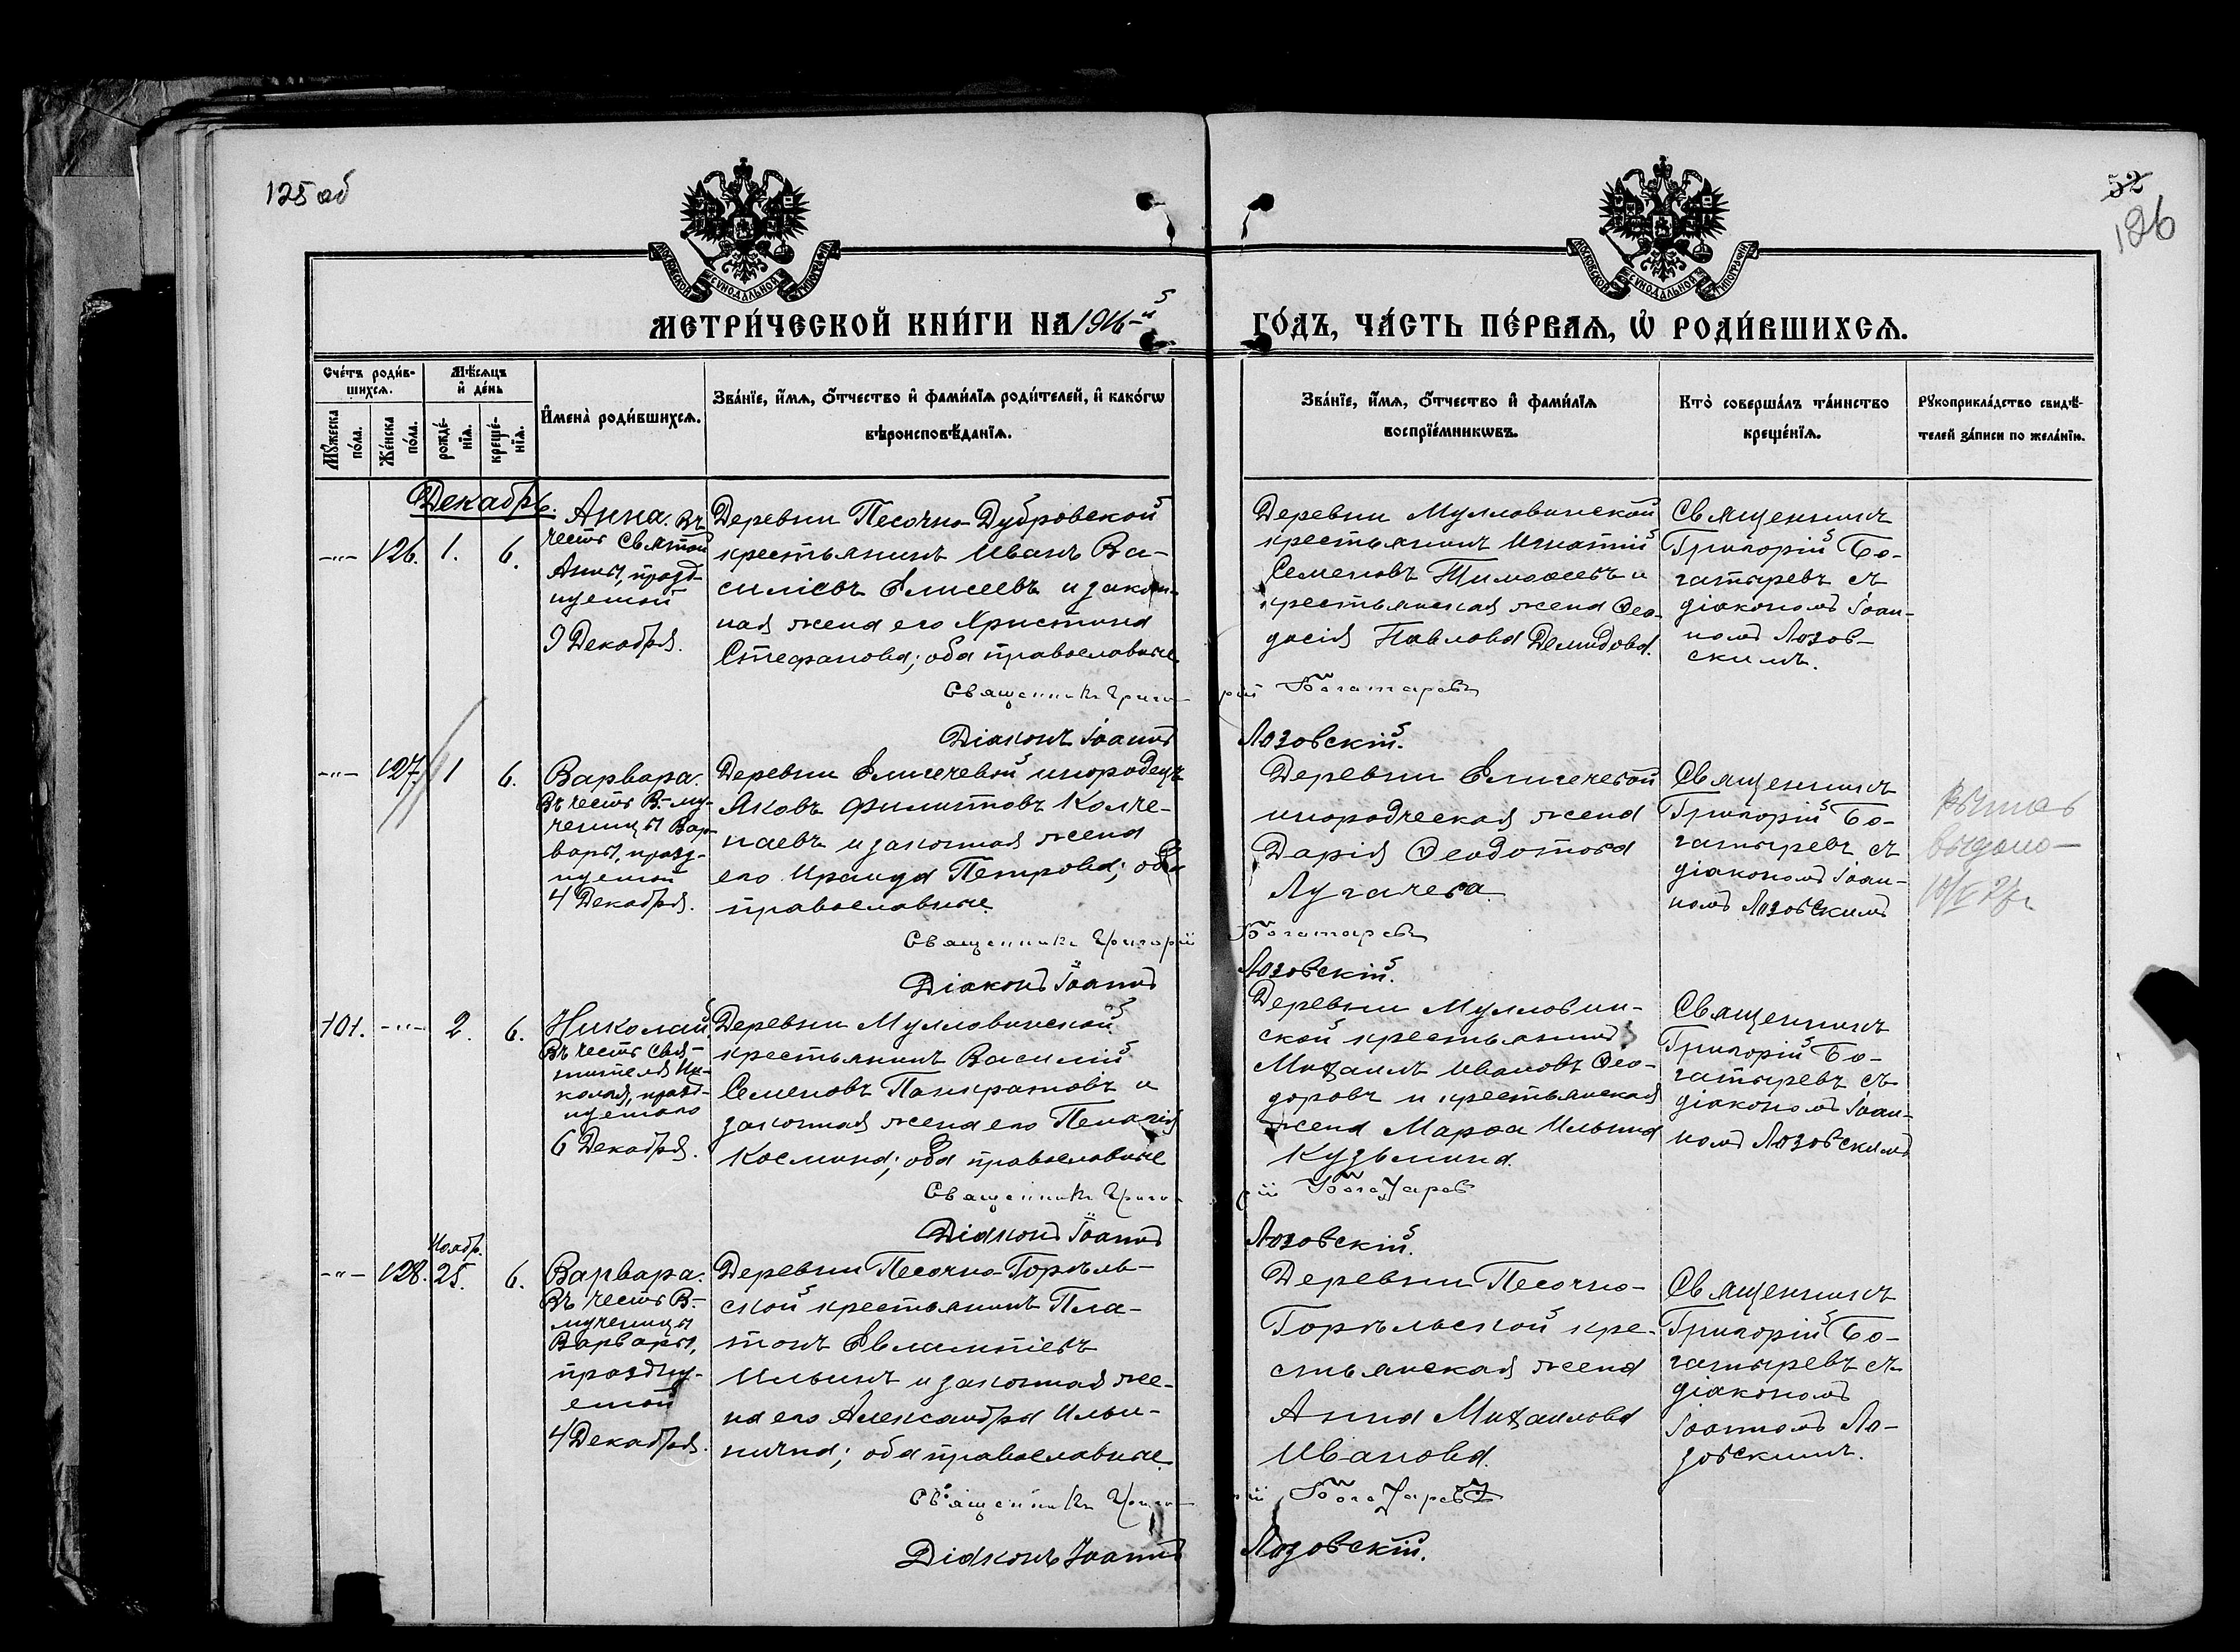 125 об
52
126
МОСКОВСКОЙ СѴНОДАЛЬНОЙ ТИПОГРАФІИ
МОСКОВСКОЙ СѴНОДАЛЬНОЙ ТИПОГРАФІИ
МЕТРИ́ЧЕСКОЙ КНИ́ГИ НА 1916-й
ГО́ДЪ, ЧА́СТЬ ПЕ́РВАѦ, Ѡ҆ РОДИ́ВШИХСѦ.
Сче́тъ роди́в-
шихсѧ.
Мꙋ́жеска по́ла.
Же́нска по́ла.
Мѣ́сѧцъ
и҆ де́нь
рожде́-
нїѧ.
креще́-
нїѧ.
И҆мена̀ роди́вшихсѧ.
Зва́нїе, и҆́мѧ, ѻ҆́тчество и҆ фами́лїѧ роди́телей, и҆ како́гѡ
вѣроисповѣ́данїѧ.
Зва́нїе, и҆́мѧ, ѻ҆́тчество и҆ фами́лїѧ
воспрїе́мникѡвъ.
Кто̀ соверша́лъ та́инство
креще́нїѧ.
Рꙋкоприкла́дство свидѣ́-
телей за́писи по жела́нїю.
Декабрь.
-"- 126. 1. 6.
Анна. Въ
честь Святой
Анны, празд-
нуемой
9 Декабря.
Деревни Песочно-Дубровской
крестьянинъ Иванъ Ва-
силіевъ Елисеевъ и закон-
ная жена его Христина
Стефанова; оба православные.
Деревни Мулловинской
крестьянинъ Игнатій
Семеновъ Тимоѳеевъ и
крестьянская жена Ѳео-
досія Павлова Демидова.
Священникъ
Григорій Бо-
гатыревъ съ
діакономъ Іоан-
номъ Лозов-
скимъ.
Священникъ Григорій Богатыревъ
Діаконъ Іоаннъ Лозовскій.
-"- 127. 1 6.
Варвара.
Въ честь В-му-
ченицы Вар-
вары, празд-
нуемой
4 Декабря.
Деревни Елигечевой инородецъ
Яковъ Филиповъ Колче-
наевъ и законная жена
его Ираида Петрова; оба
православные.
Деревни Елигечевой
инородческая жена
Дарія Ѳеодотова
Лугачева.
Священникъ
Григорій Бо-
гатыревъ съ
діакономъ Іоан-
номъ Лозовскимъ
выдано
Священникъ Григорій Богатыревъ
Діаконъ Іоаннъ Лозовскій.
101. -"- 2. 6.
Николай.
Въ честь Свя-
тителя Ни-
колая, празд-
нуемаго
6 Декабря.
Деревни Мулловинской
крестьянинъ Василій
Семеновъ Панкратовъ и
законная жена его Пелагія
Космина; оба православные
Деревни Мулловин-
ской крестьянинъ
Михаилъ Ивановъ Ѳео-
доровъ и крестьянская
жена Марѳа Ильина
Кузьмина.
Священникъ
Григорій Бо-
гатыревъ съ
діакономъ Іоан-
номъ Лозовскимъ
Священникъ Григорій Богатырев
Діаконъ Іоаннъ Лозовскій.
Ноябр.
-"- 128. 25. 6.
Варвара.
Въ честь В.-
мученицы
Варвары,
праздну-
емой
4 Декабря.
Деревни Песочно-Горѣль-
ской крестьянинъ Пла-
тонъ Евлампіевъ
Ильинъ и законная же-
на его Александра Ильи-
нична; оба православные.
Деревни Песочно-
Горѣльской кре-
стьянская жена
Анна Михаилова
Иванова.
Священникъ
Григорій Бо-
гатыревъ съ
діакономъ
Іоанномъ Ло-
зовскимъ.
Священникъ Григорій Богатыревъ
Діаконъ Іоаннъ Лозовскій.